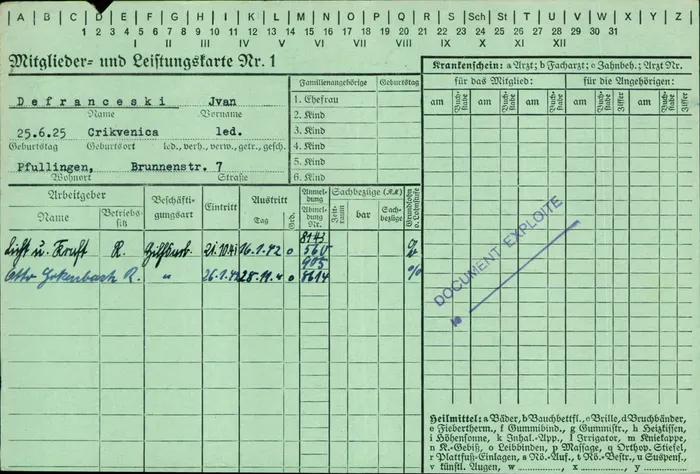 A B C D E F G H I J K L M N O P Q R S Sch St T U V W X Y Z
1 2 3 4 5 6 7 8 9 10 11 12 13 14 15 16 17 18 19 20 21 22 23 24 25 26 27 28 29 30 31
I II III IV V VI VII VIII IX X XI XII
Mitglieder- und Leistungskarte Nr. 1
Defranceski Jvan
Name Vorname
25.6.25 Crikvenica led.
Geburtstag Geburtsort led., verh., verw., getr., gesch.
Pfullingen, Brunnenstr. 7
Wohnort Straße
Familienangehörige Geburtstag
1. Ehefrau
2. Kind
3. Kind
4. Kind
5. Kind
6. Kind
Krankenschein: a Arzt; b Facharzt; c Zahnbeh.; Arzt Nr.
für das Mitglied: für die Angehörigen:
am Buchstabe am Buchstabe am Buchstabe am Buchstabe am Buchstabe Ziffer am Buchstabe Ziffer
Arbeitgeber Beschäftigungsart Eintritt Austritt Anmeldung Sachbezüge
Name Betriebssitz Tag Abmeldung Nr. Zeitraum bar Sachbezüge Grundlohn o. Lohnstufe
8143
Licht u. Kraft R. 21.10.41 16.1.42 o
905
Otto R. " 26.1.42 28.11. o 8614 %
DOCUMENT EXPLOITE
Heilmittel: a Bäder, b Bauchbettfl., c Brille, d Bruchbänder,
e Fiebertherm., f Gummibind., g Gummistr., h Heizkissen,
i Höhensonne, k Inhal.-App., l Irrigator, m Kniekappe,
n K.-Gebiß, o Leibbinden, p Massage, q Orthop. Stiefel,
r Plattfuß-Einlagen, s Nö.-Auf., t Nö.-Bestr., u Suspens.,
v künstl. Augen, w x y